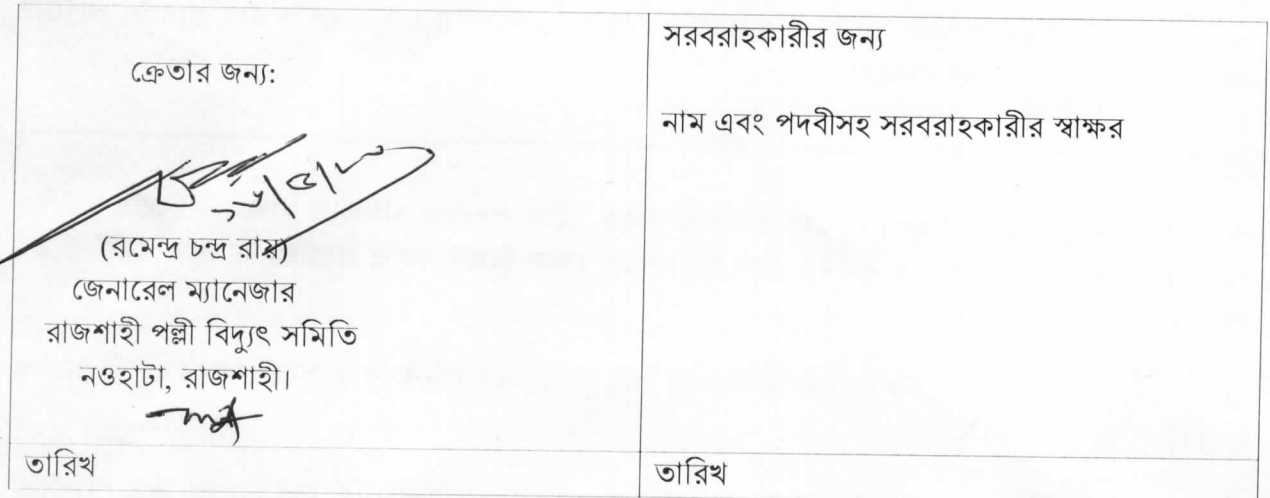 ক্রেতার জন্য:
(রমেন্দ্র চন্দ্র রায়)
জেনারেল ম্যানেজার
রাজশাহী পল্লী বিদ্যুৎ সমিতি
নওহাটা, রাজশাহী।
তারিখ
সরবরাহকারীর জন্য
নাম এবং পদবীসহ সরবরাহকারীর স্বাক্ষর
তারিখ